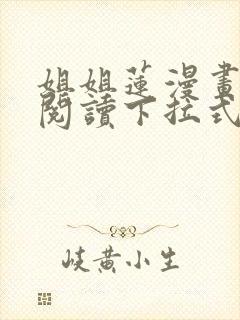 姐姐蓮漫畫
閱讀下拉式
岐黄小生